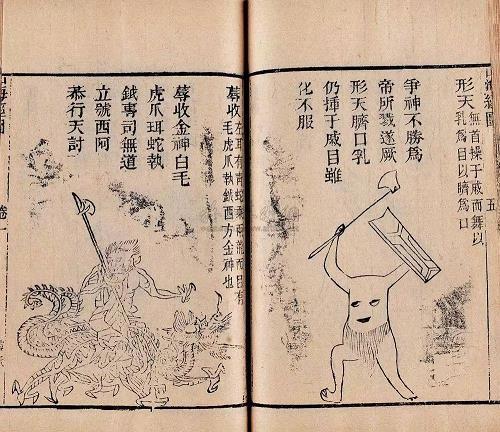 山海經圖 五
形天 無首操干戚而舞以
乳爲目以臍爲口
爭神不勝爲
帝所戮遂厥
形天臍口乳
仍揮干戚目雖
化不服
蓐收 左耳有青蛇乘兩龍面目有
毛虎爪執鉞西方金神也
蓐收金神白毛
虎爪珥蛇執
鉞專司無道
立號西阿
恭行天討
卷一